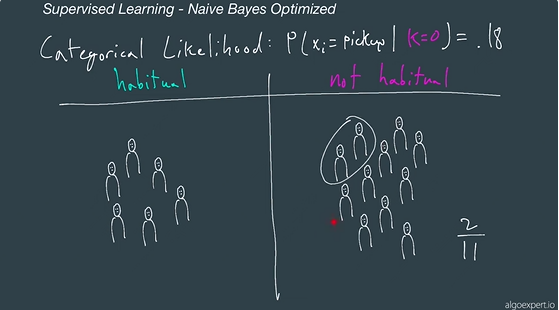 Supervised Learning - Naive Bayes Optimized
Categorical Likelihood: P(xi=pickup | K=0) = .18
habitual
not habitual
2
11
algoexpert.io